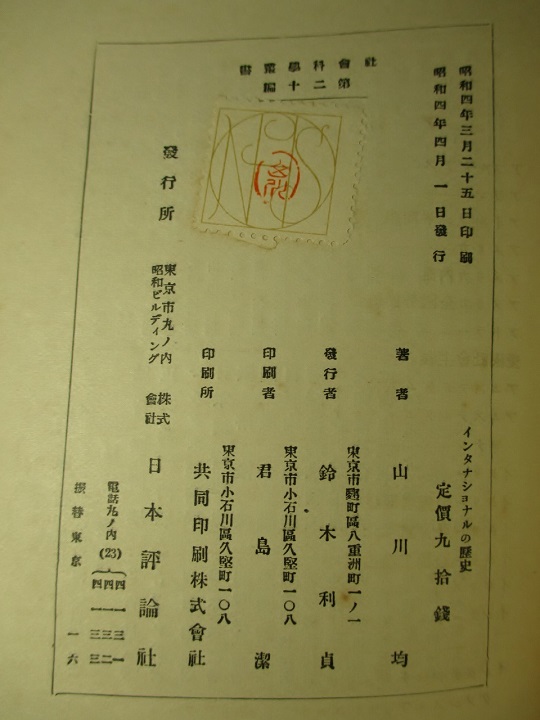 社會科學叢書
第二十編
昭和四年三月二十五日印刷
昭和四年四月一日發行
インタナショナルの歴史
定價九拾錢
著者 山川均
東京市麴町區八重洲町一ノ一
發行者 鈴木利貞
東京市小石川區久堅町一〇八
印刷者 君島潔
東京市小石川區久堅町一〇八
印刷所 共同印刷株式會社
發行所
東京市丸ノ内
昭和ビルディング
株式
會社
日本評論社
電話丸ノ内(23)
四一三一
四一三二
四一三三
振替東京 一六